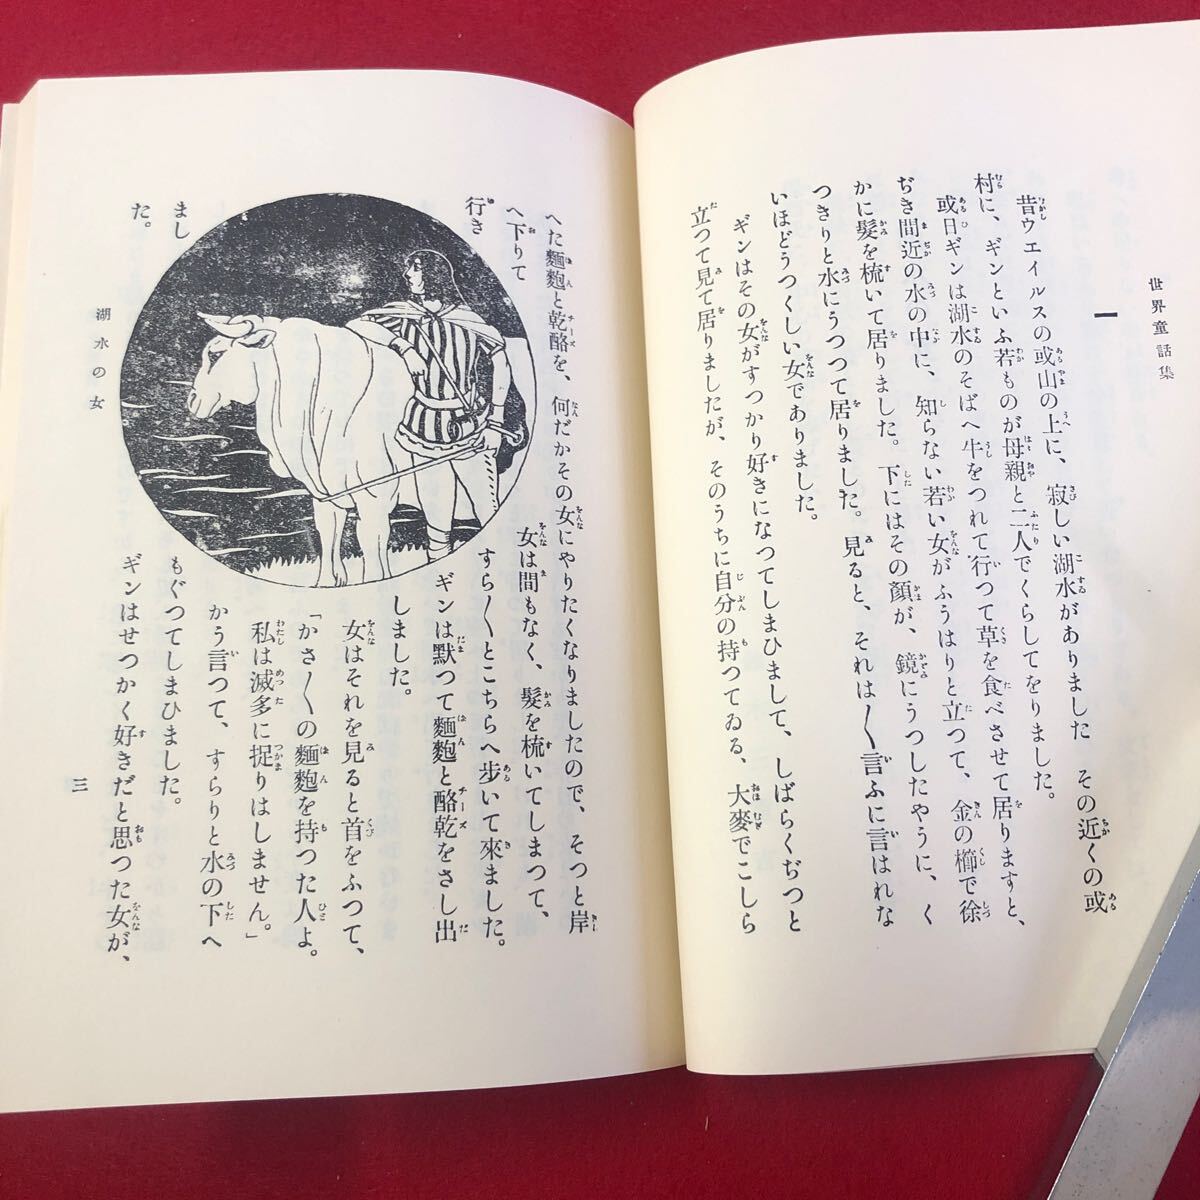 世界童話集
一
昔ウエイルスの或山の上に、寂しい湖水がありました　その近くの或
村に、ギンといふ若ものが母親と二人でくらしてをりました。
或日ギンは湖水のそばへ牛をつれて行つて草を食べさせて居りますと、
ぢき間近の水の中に、知らない若い女がふうはりと立つて、金の櫛で徐
かに髮を梳いて居りました。下にはその顏が、鏡にうつしたやうに、く
つきりと水にうつつて居りました。見ると、それは〳〵言ふに言はれな
いほどうつくしい女でありました。
ギンはその女がすつかり好きになつてしまひまして、しばらくぢつと
立つて見て居りましたが、そのうちに自分の持つてゐる、大麥でこしら
へた麵麭と乾酪を、何だかその女にやりたくなりましたので、そつと岸
へ下りて
行き
まし
た。
女は間もなく、髮を梳いてしまつて、
すら〳〵とこちらへ步いて來ました。
ギンは默つて麵麭と酪乾をさし出
しました。
女はそれを見ると首をふつて、
「かさ〳〵の麵麭を持つた人よ。
私は滅多に捉りはしません。」
かう言つて、すらりと水の下へ
もぐつてしまひました。
ギンはせつかく好きだと思つた女が、
湖水の女
三